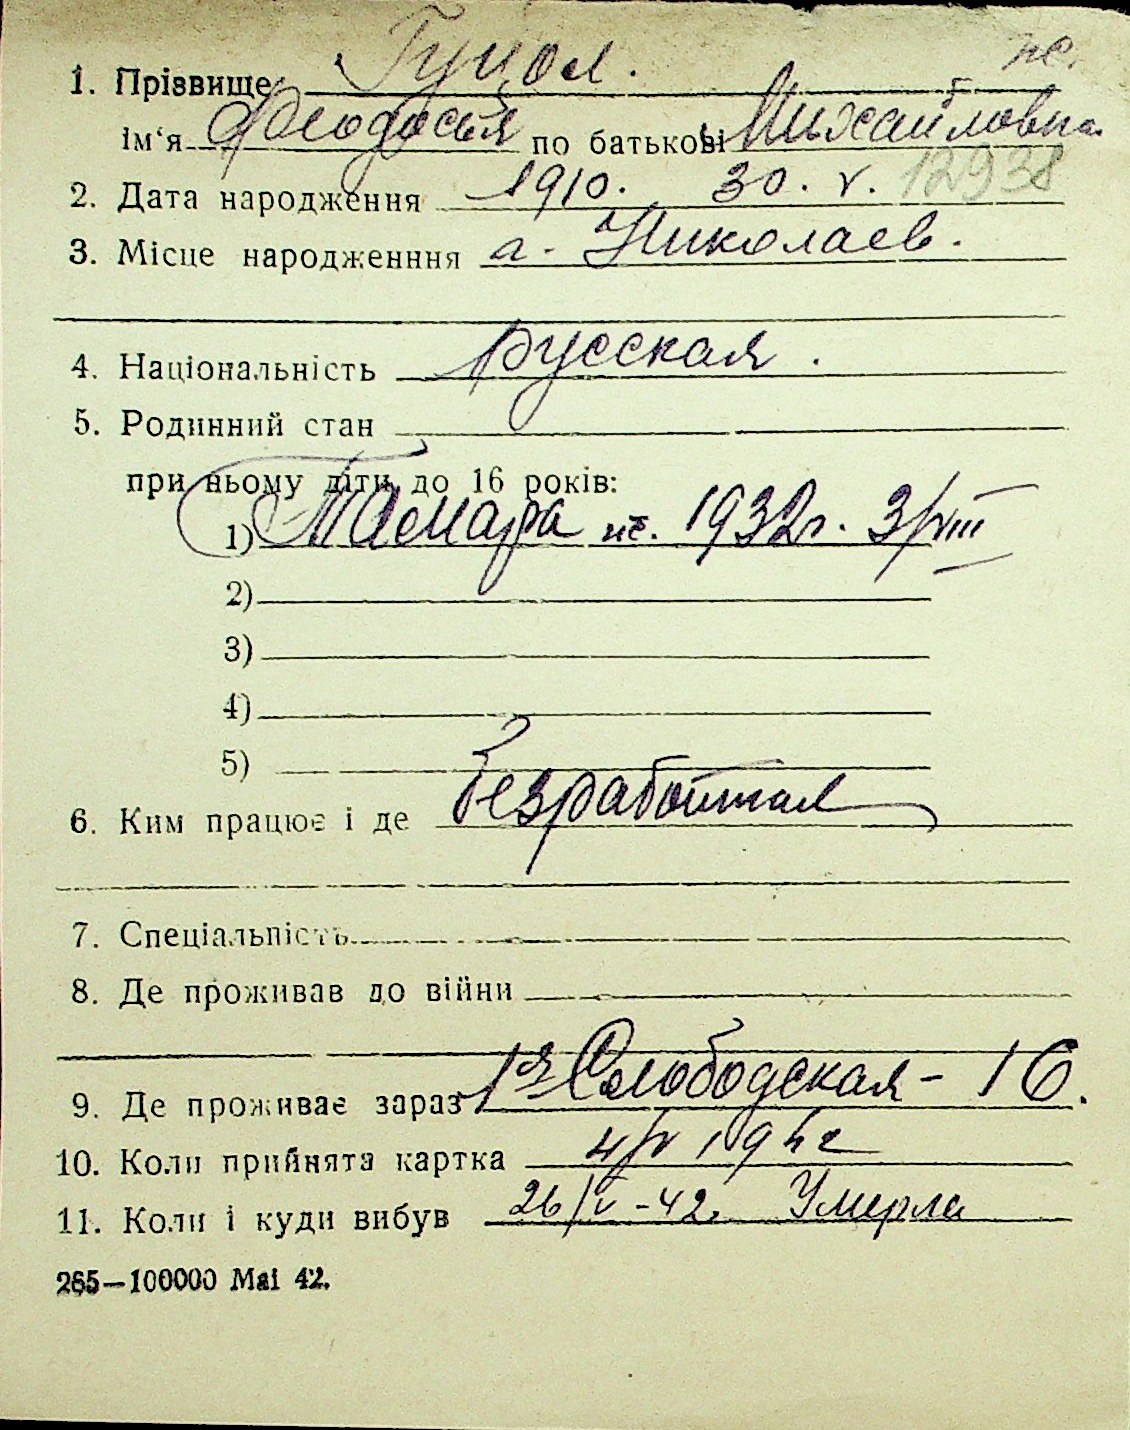 1. Прізвище Гуцол. же.
ім‘я Феодосья по батькові Михайловна
2. Дата народження 1910. 30. V. 12938
3. Місце народженння г. Николаев.
4. Національність русская.
5. Родинний стан
при ньому діти до 16 років:
1) Тамара 1932г. 3/VIII
2)
3)
4)
5)
6. Ким працює і де Безработная
7. Спеціальність
8. Де проживав до війни
9. Де проживає зараз 1я Слободская - 16.
10. Коли прийнята картка 4/V 1942
11. Коли і куди вибув 26/V - 42. Умерла
265—100000 Mai 42.